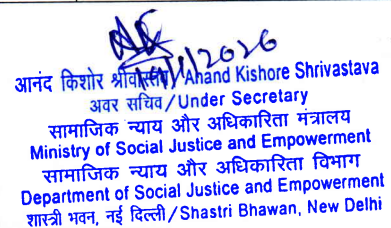 आनंद किशोर श्रीवास्तव/Anand Kishore Shrivastava
अवर सचिव/Under Secretary
सामाजिक न्याय और अधिकारिता मंत्रालय
Ministry of Social Justice and Empowerment
सामाजिक न्याय और अधिकारिता विभाग
Department of Social Justice and Empowerment
शास्त्री भवन, नई दिल्ली/Shastri Bhawan, New Delhi